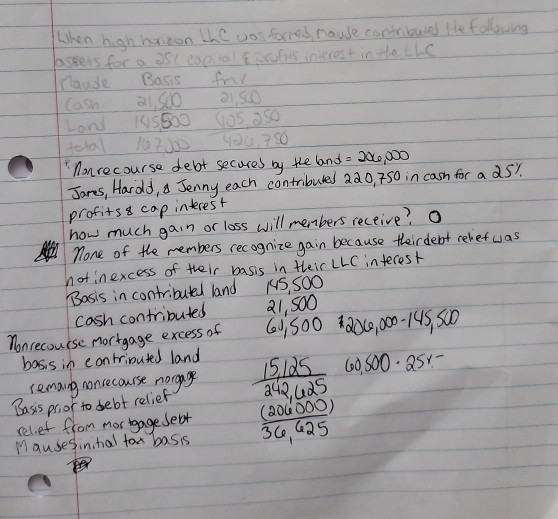 When high horizon LLC was formed, Maude contributed the following
assets for a 25% capital & profits interest in the LLC
Maude Basis fmv
Cash 21,500 21,500
Land 145500 405,250
total 167,000 426,750
*Nonrecourse debt secured by the land = 206,000
James, Harold, & Jenny each contributed 220,750 in cash for a 25%
profits & cap interest
how much gain or loss will members receive? 0
None of the members recognize gain because their debt relief was
not in excess of their basis in their LLC interest
Basis in contributed land 145,500
Cash contributed 21,500
Nonrecourse mortgage excess of 60,500 $206,000-145,500
basis in contributed land
remaing nonrecourse morgage 15,125 60,500 · 25%
Basis prior to debt relief 242,625
relief from mortgage debt (206000)
Maudes initial tax basis 36,625